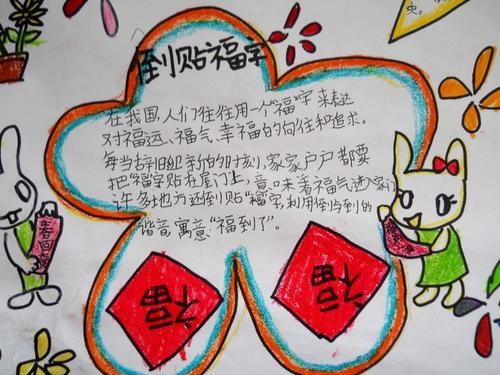 倒贴福字
在我国,人们往往用一个“福”字来表达
对福运、福气、幸福的向往和追求。
每当辞旧迎新的时刻,家家户户都要
把“福”字贴在屋门上,意味着福气进家门
许多地方还倒贴“福”字,利用倒与到的
谐音,寓意“福到了”。
春回
福
福